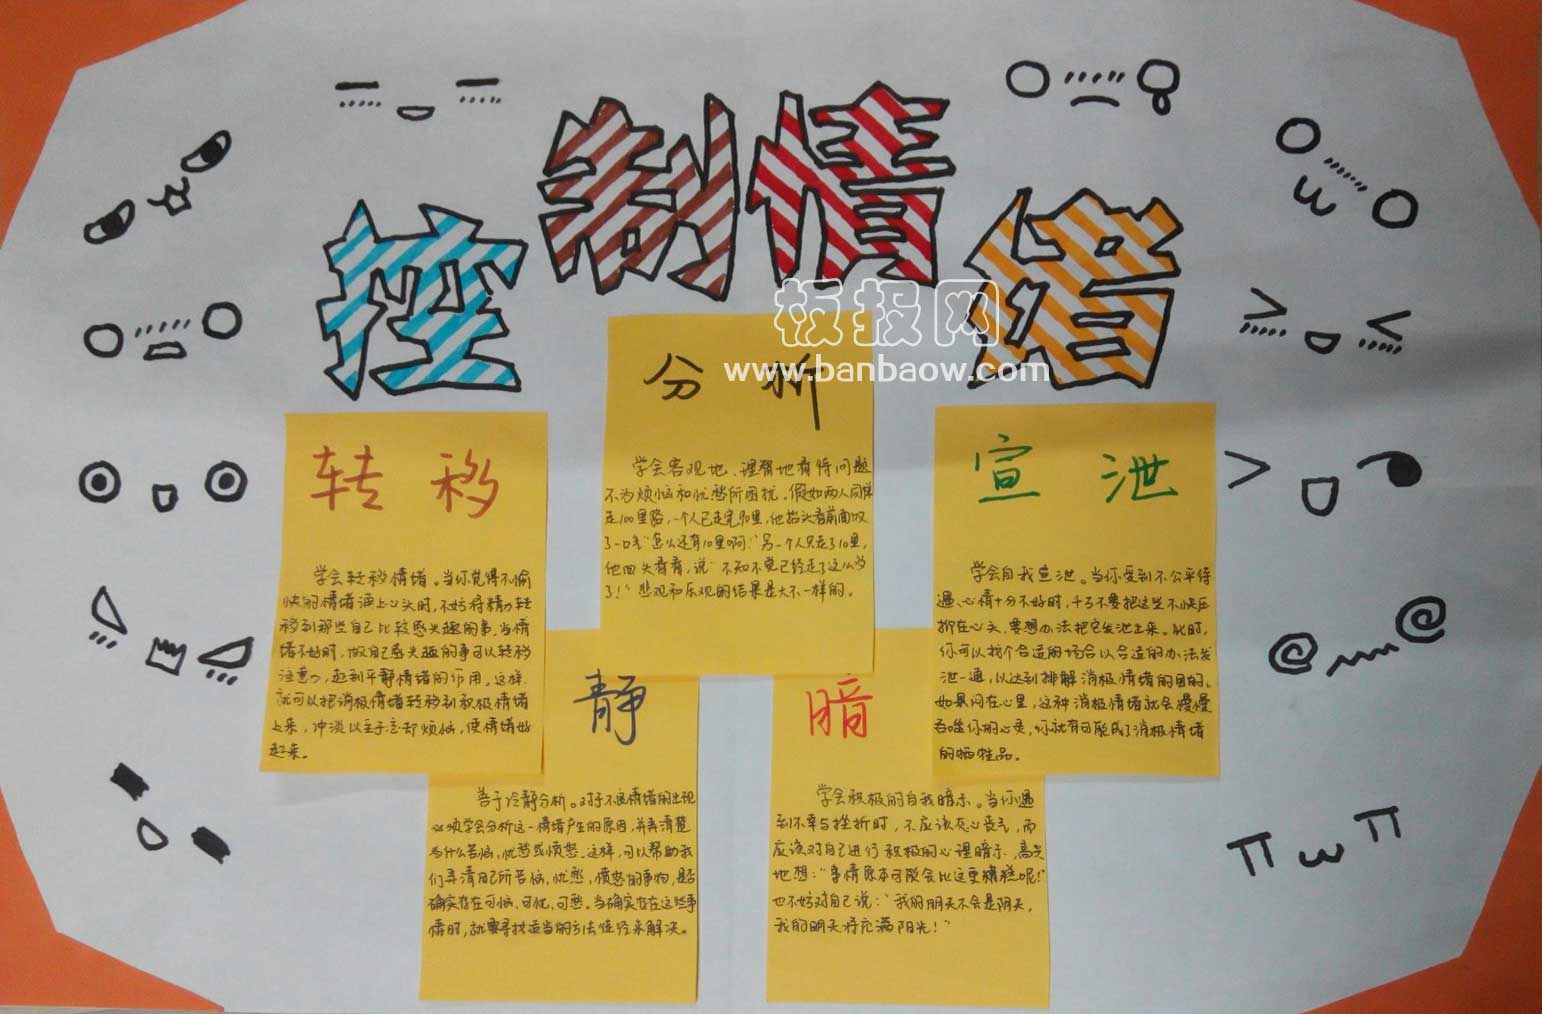 控制情绪
板报网
www.banbaow.com
分析
学会客观地、理智地看待问题
不为烦恼和忧愁所困扰。假如两人同样
走100里路，一个人已走完90里，他抬头看前面叹
了一口气“怎么还有10里啊！”另一个人只走了10里，
他回头看看，说“不知不觉已经走了这么多
了！”悲观和乐观的结果是大不一样的。
转移
学会转移情绪。当你觉得不愉
快的情绪涌上心头时，不妨将精力转
移到那些自己比较感兴趣的事。当情
绪不好时，做自己感兴趣的事可以转移
注意力，起到平静情绪的作用。这样
就可以把消极情绪转移到积极情绪
上来，冲淡以至于忘却烦恼，使情绪好
起来。
宣泄
学会自我宣泄。当你受到不公平待
遇、心情十分不好时，千万不要把这些不快压
抑在心头，要想办法把它发泄出来。此时，
你可以找个合适的场合以合适的办法发
泄一通，以达到排解消极情绪的目的。
如果闷在心里，这种消极情绪就会慢慢
吞噬你的心灵，你就有可能成了消极情绪
的牺牲品。
静
善于冷静分析。对于不良情绪的出现
必须学会分析这一情绪产生的原因，并弄清楚
为什么苦恼、忧愁或愤怒。这样，可以帮助我
们弄清自己所苦恼、忧愁、愤怒的事物，是否
确实存在可恼、可忧、可愁。当确实存在这些事
情时，就要寻找适当的方法途径来解决。
暗
学会积极的自我暗示。当你遇
到不幸与挫折时，不应该灰心丧气，而
应该对自己进行积极的心理暗示，高兴
地想：“事情原本可能会比这更糟糕呢！”
也不妨对自己说：“我的明天不会是阴天，
我的明天将充满阳光！”